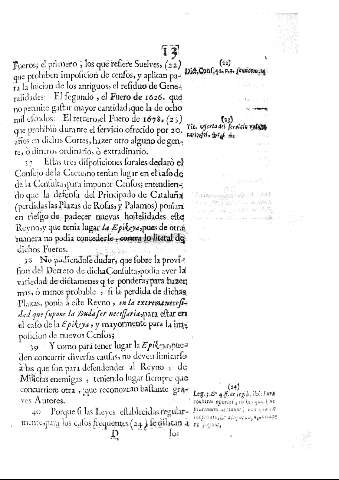 13
Fueros; el primero, los que refiere Suelves, (22)
que prohiben imposicion de censos, y aplican pa-
ra la lucion de los antiguos el residuo de Gene-
ralidades: El segundo, el Fuero de 1626. que
no permite gastar mayor cantidad, que la de ocho
mil escudos: El tercero, el Fuero de 1678. (23)
que prohibiò durante el servicio ofrecido por 20.
años en dichas Cortes, hazer otro alguno de gen-
te, ò dinero ordinario, ò extradinario.
37 Estas tres disposiciones forales declarò el
Consejo de la Caetano tenian lugar en el caso de
de la Consulta, para imponer Censos; entendien-
do que la defensa del Principado de Cataluña
(perdidas las Plazas de Rosas, y Palamos) ponian
en riesgo de padecer nuevas hostilidades este
Reyno, y que tenia lugar la Epikeya, pues de otra
manera no podia concederlo, contra lo literal de
dichos Fueros.
38 No pudiendose dudar, que sobre la provis-
sion del Decreto de dicha Consulta, podia aver la
variedad de dictamenes q̃ se pondera, para hazer
mas, ò menos probable, si la perdida de dichas
Plazas, ponia à este Reyno, en la extrema necesi-
dad que supone la Duda ser necessaria, para estar en
el caso de la Epikeya, y mayormente para la im-
posicion de nuevos Censos;
39 Y como para tener lugar la Epikeya, pue-
den concurrir diversas causas, no deven limitarse
à las que son para defenderse al Reyno, de
Milicias enemigas, teniendo lugar siempre que
concurrieren otra, que reconozcan bastante gra-
ves Autores.
40 Porque si las Leyes establecidas regular-
mente, para los casos frequentes (24) se dilatan à
D los
(22)
Did. Cons.
(23)
Tit. oferta del servicio
(24)
Leg.